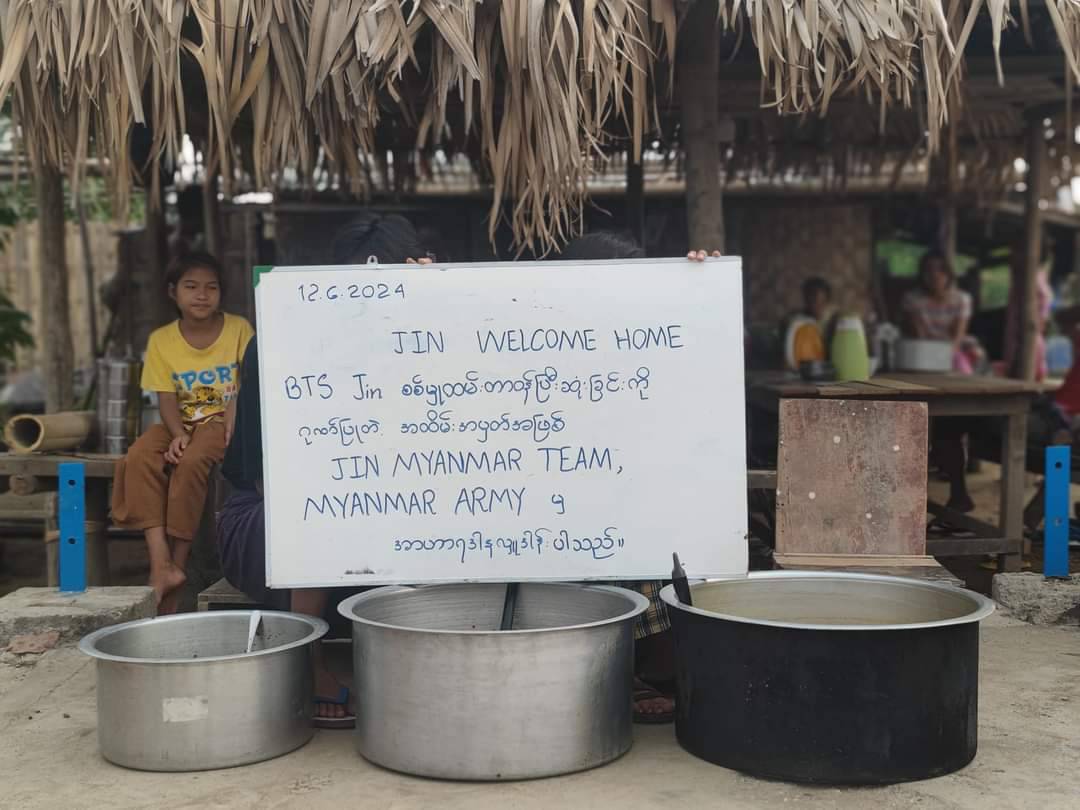 12.6.2024
JIN WELCOME HOME
BTS Jin စစ်မှုထမ်းတာဝန်ပြီးဆုံးခြင်းကို
ဂုဏ်ပြုတဲ့ အထိမ်းအမှတ်အဖြစ်
JIN MYANMAR TEAM,
MYANMAR ARMY မှ
အာဟာရဒါနလှူဒါန်းပါသည်။
PORT